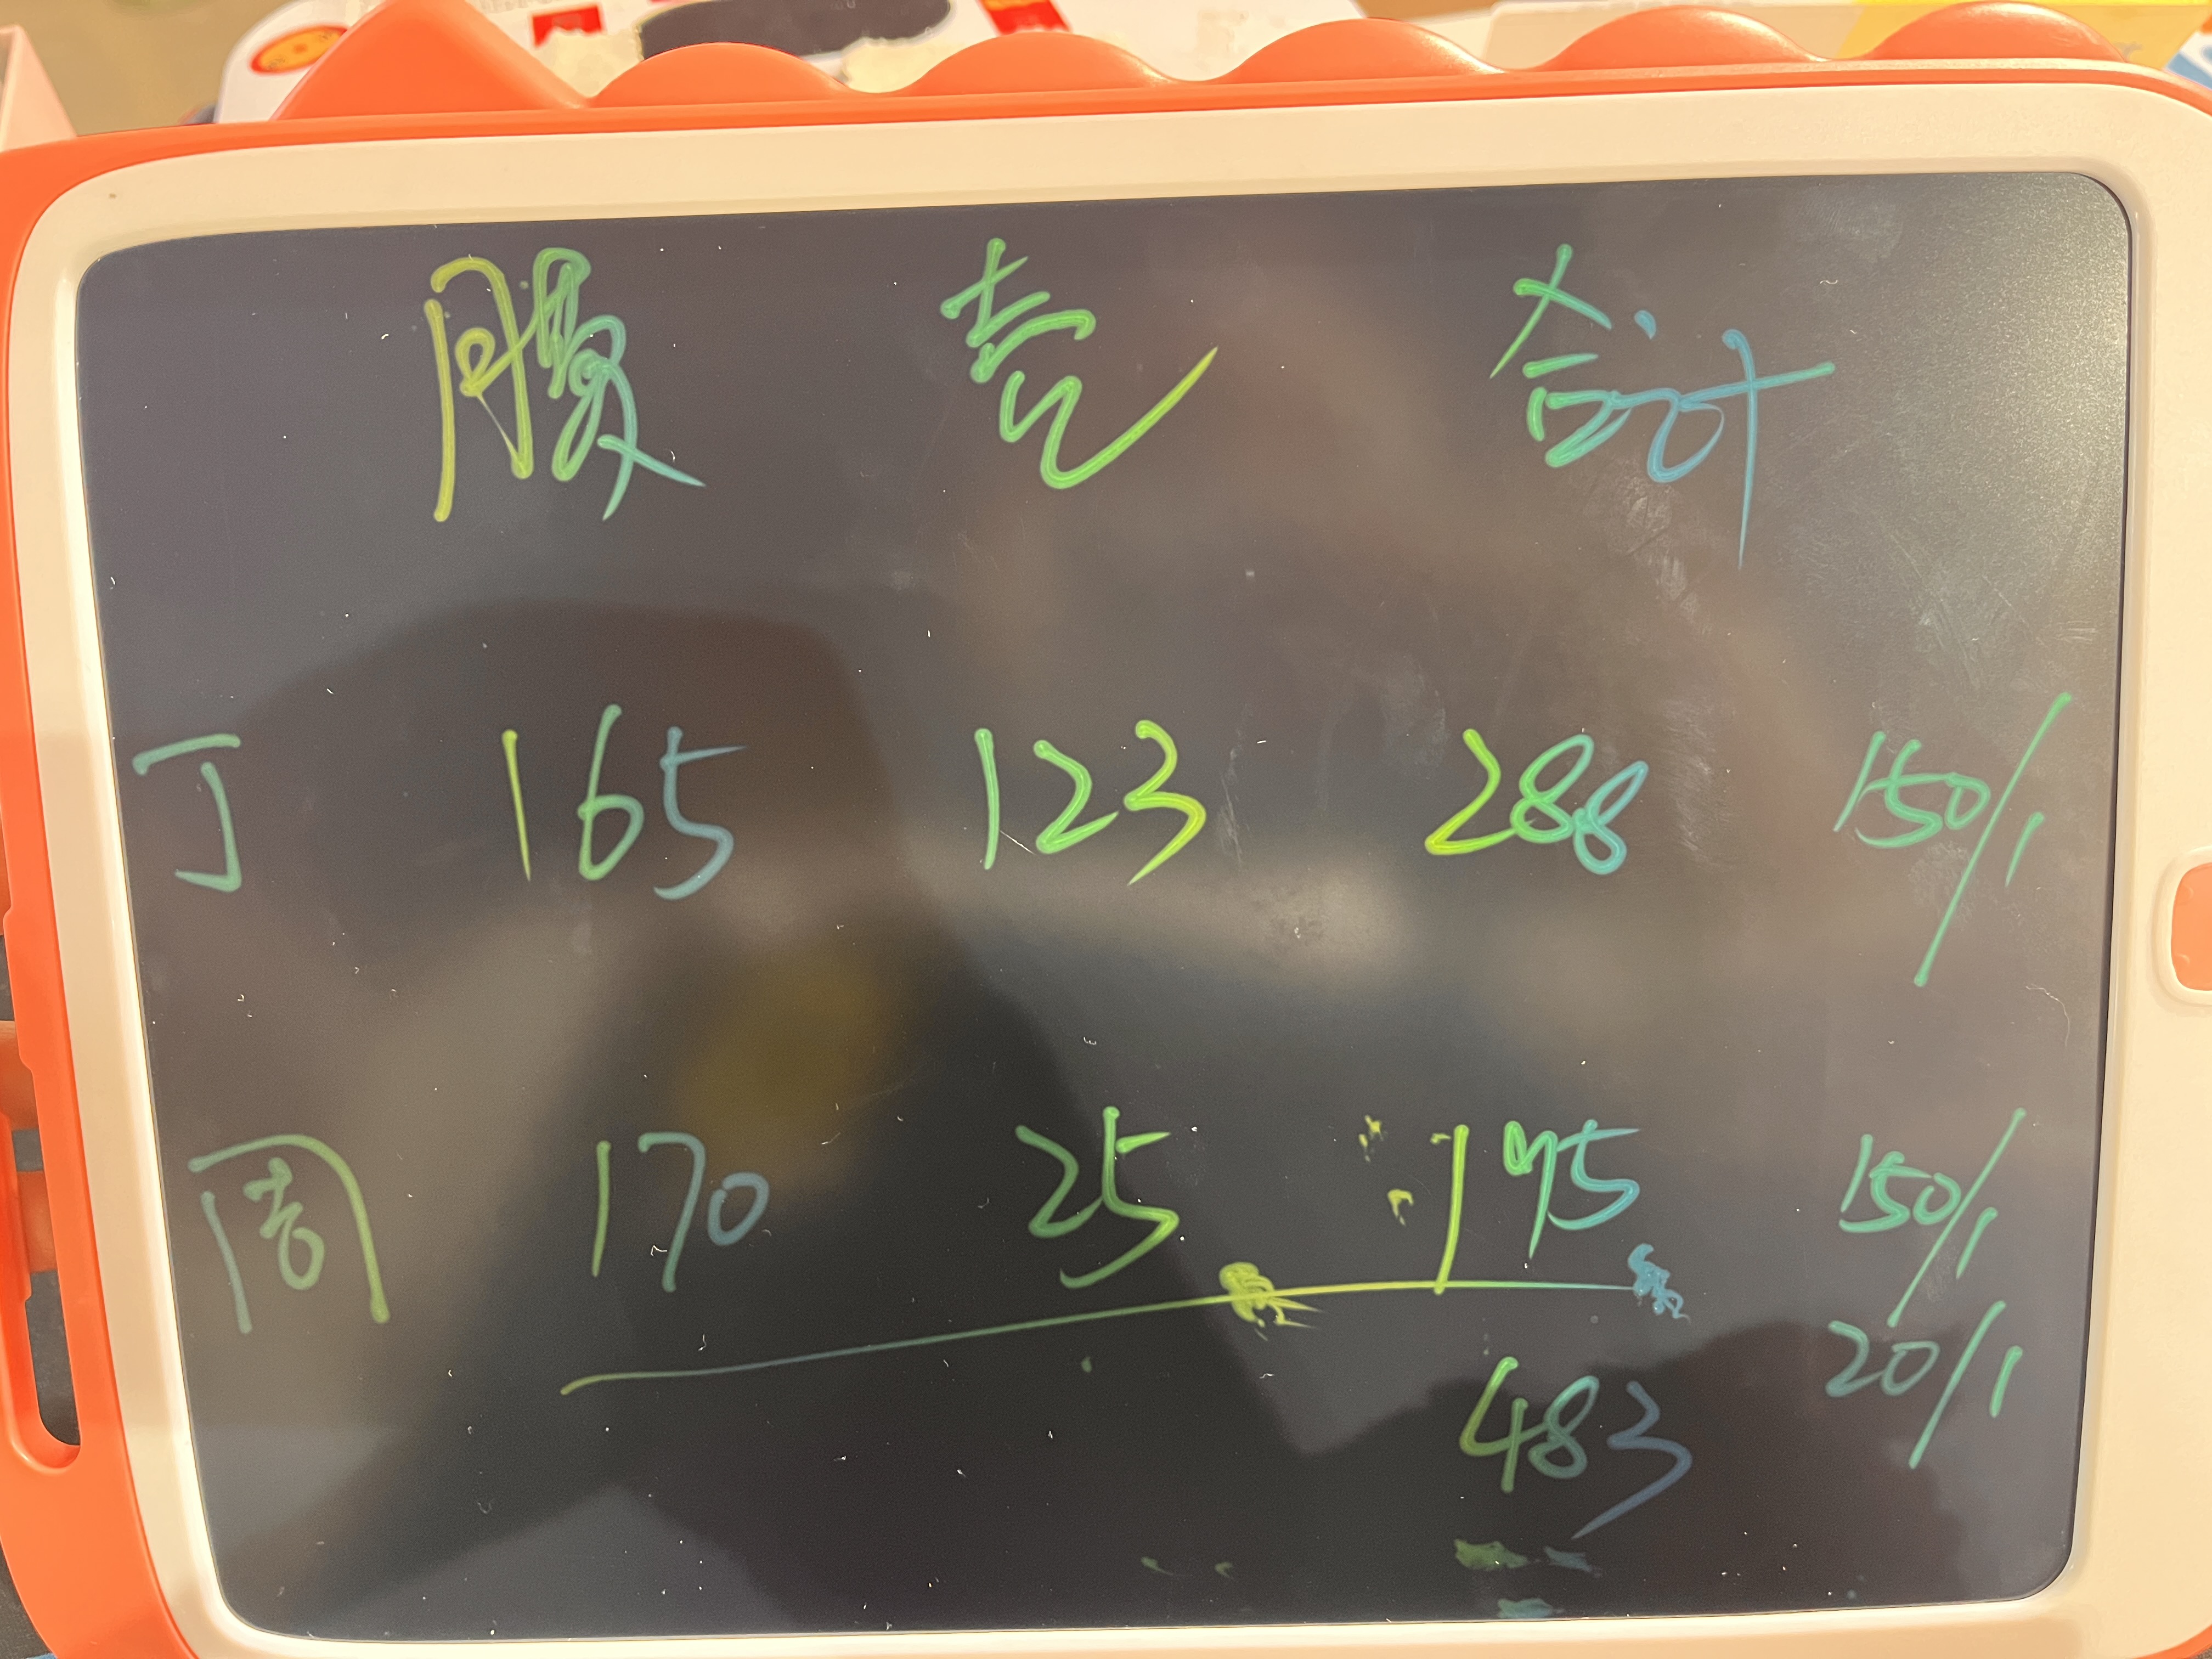 腹 壳 合计
丁 165 123 288 150/1
周 170 25 195 150/1
20/1
483